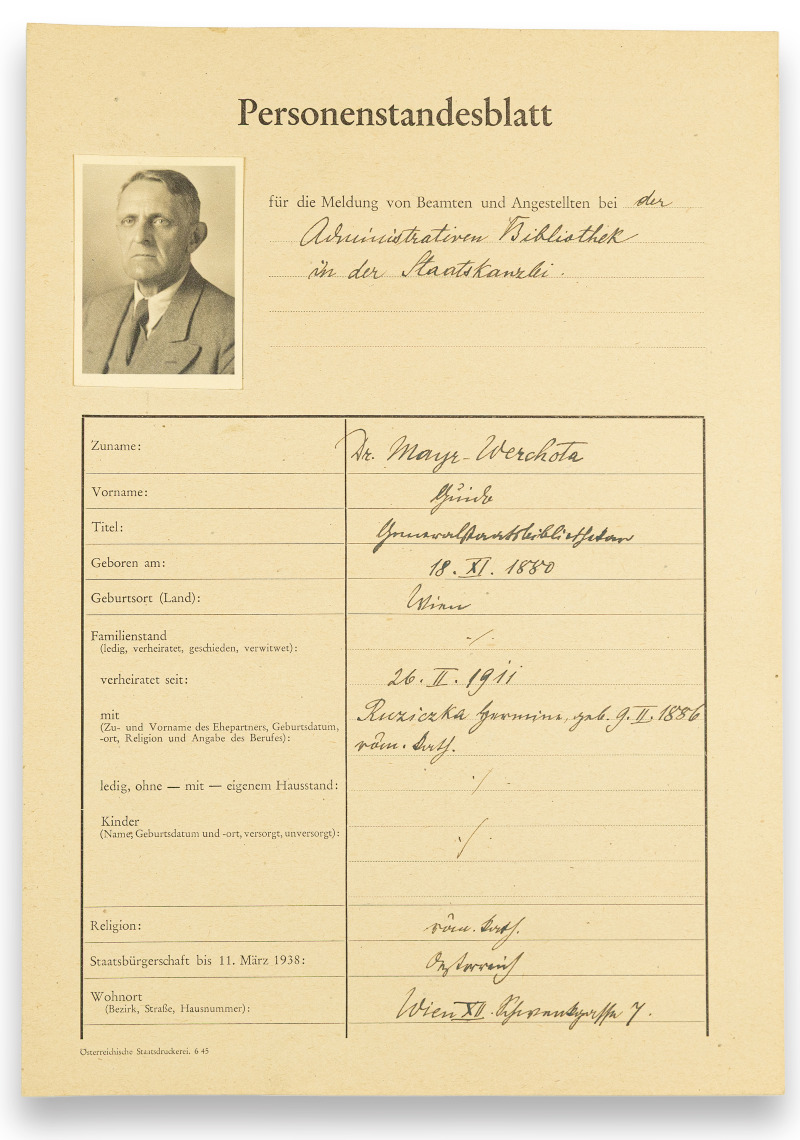 Personenstandesblatt
für die Meldung von Beamten und Angestellten bei der
Administrativen Bibliothek
in der Staatskanzlei.
Zuname: Dr. Mayr-Werchota
Vorname: Guido
Titel: Generalstaatsbibliothekar
Geboren am: 18. XI. 1880
Geburtsort (Land): Wien
Familienstand ·/·
(ledig, verheiratet, geschieden, verwitwet):
verheiratet seit: 26. II. 1911
mit Ruziczka Hermine, geb. 9. II. 1886
(Zu- und Vorname des Ehepartners, Geburtsdatum,
-ort, Religion und Angabe des Berufes): röm. kath.
ledig, ohne — mit — eigenem Hausstand: ·/·
Kinder
(Name, Geburtsdatum und -ort, versorgt, unversorgt): ·/·
Religion: röm. kath.
Staatsbürgerschaft bis 11. März 1938: Oesterreich
Wohnort
(Bezirk, Straße, Hausnummer): Wien XII. Schwenkgasse 7.
Österreichische Staatsdruckerei. 6 45